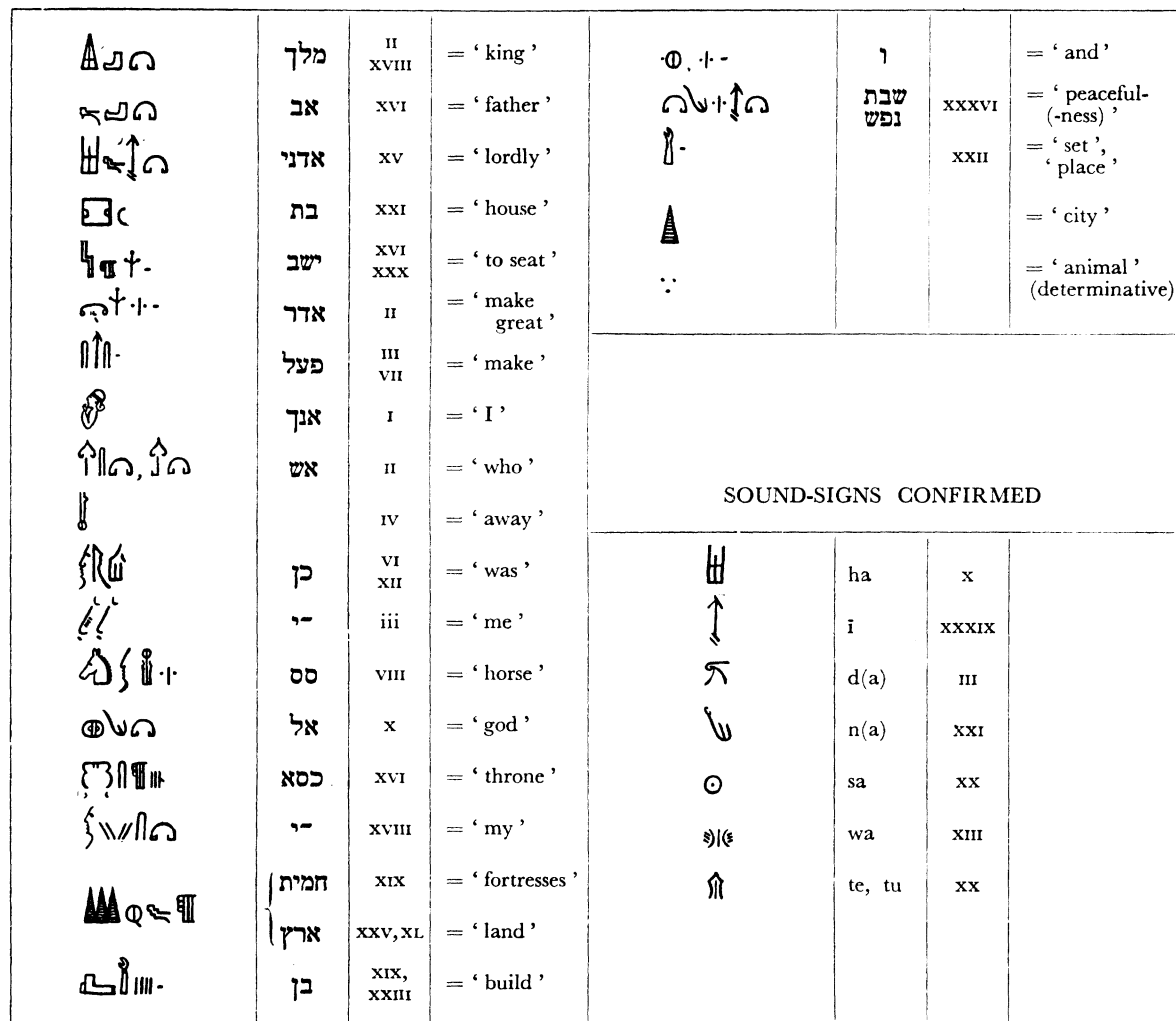 מלך II XVIII = ‘ king ’
אב XVI = ‘ father ’
אדני XV = ‘ lordly ’
בת XXI = ‘ house ’
ישב XVI XXX = ‘ to seat ’
אדר II = ‘ make great ’
פעל III VII = ‘ make ’
אנך I = ‘ I ’
אש II = ‘ who ’
IV = ‘ away ’
כן VI XII = ‘ was ’
־י iii = ‘ me ’
סס VIII = ‘ horse ’
אל X = ‘ god ’
כסא XVI = ‘ throne ’
־י XVIII = ‘ my ’
חמית XIX = ‘ fortresses ’
ארץ XXV, XL = ‘ land ’
בן XIX, XXIII = ‘ build ’
ו = ‘ and ’
שבת נפש XXXVI = ‘ peaceful-(-ness) ’
XXII = ‘ set ’, ‘ place ’
= ‘ city ’
= ‘ animal ’ (determinative)
SOUND-SIGNS CONFIRMED
ha X
ī XXXIX
d(a) III
n(a) XXI
sa XX
wa XIII
te, tu XX